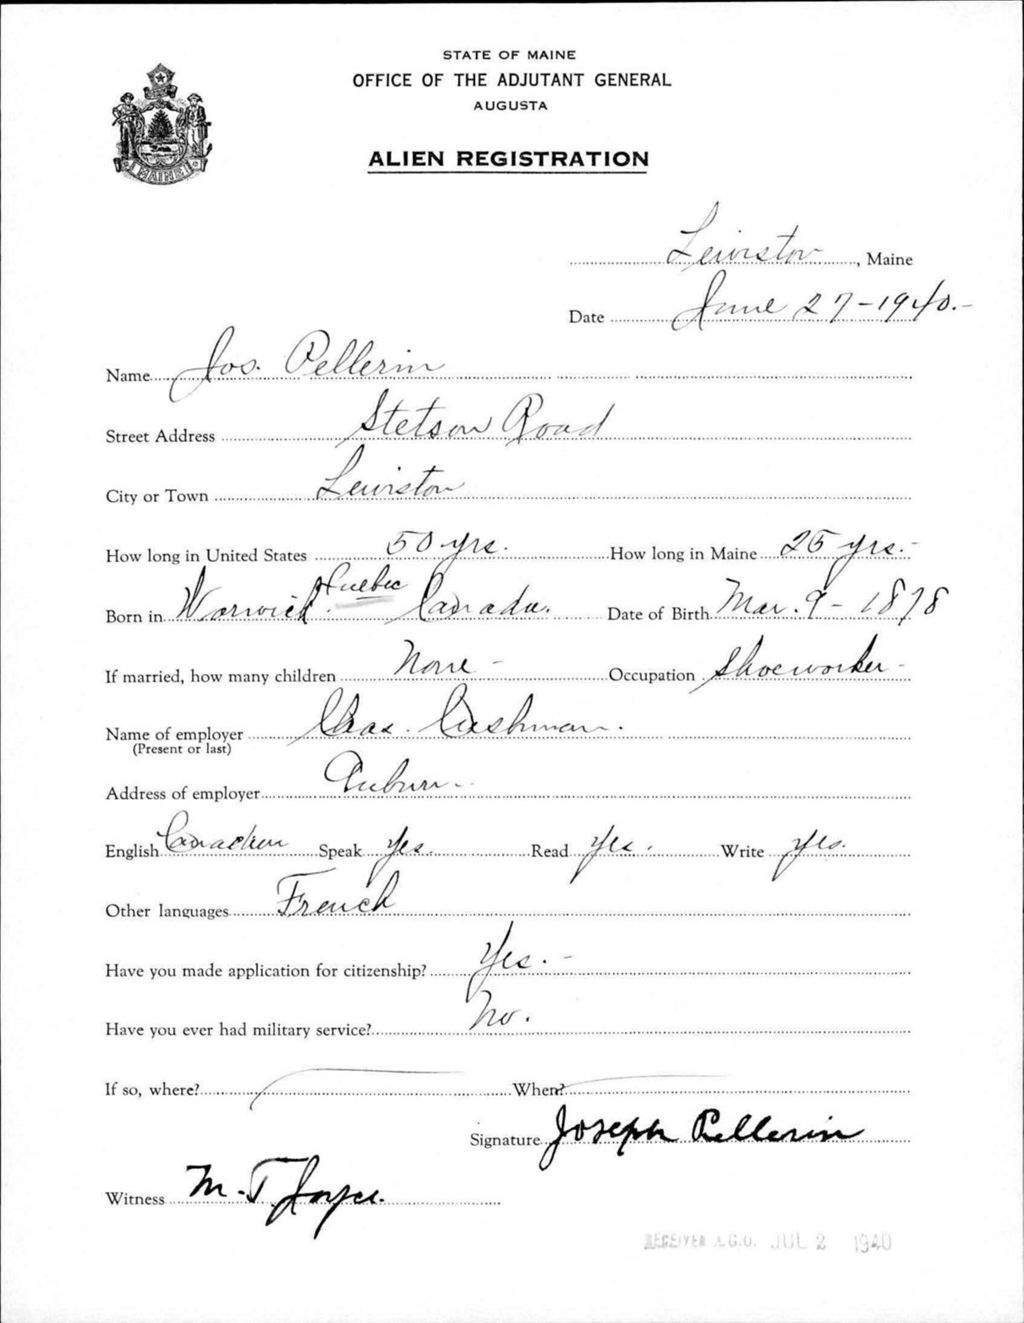 STATE OF MAINE
OFFICE OF THE ADJUTANT GENERAL
AUGUSTA
ALIEN REGISTRATION
MAINE
Lewiston, Maine
Date June 27-1940.-
Name Jos. Pellerin
Street Address Stetson Road
City or Town Lewiston
How long in United States 50 yrs. How long in Maine 25 yrs.-
Born in Warwick Quebec Canada. Date of Birth Mar. 9 - 1878
If married, how many children None - Occupation Shoeworker -
Name of employer Chas. Cushman.
(Present or last)
Address of employer Auburn -
English Canadian Speak Yes. Read Yes. Write Yes.
Other languages French
Have you made application for citizenship? Yes. -
Have you ever had military service? No.
If so, where? When?
Signature Joseph Pellerin
Witness M. T. Joyce.
RECEIVED A.G.O. JUL 2 1940